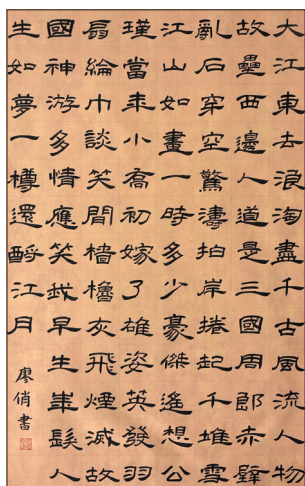 大江東去浪淘盡千古風流人物
故壘西邊人道是三國周郎赤壁
亂石穿空驚濤拍岸捲起千堆雪
江山如畫一時多少豪傑遙想公
瑾當年小喬初嫁了雄姿英發羽
扇綸巾談笑間檣櫓灰飛煙滅故
國神游多情應笑我早生華髮人
生如夢一樽還酹江月
廖俏書